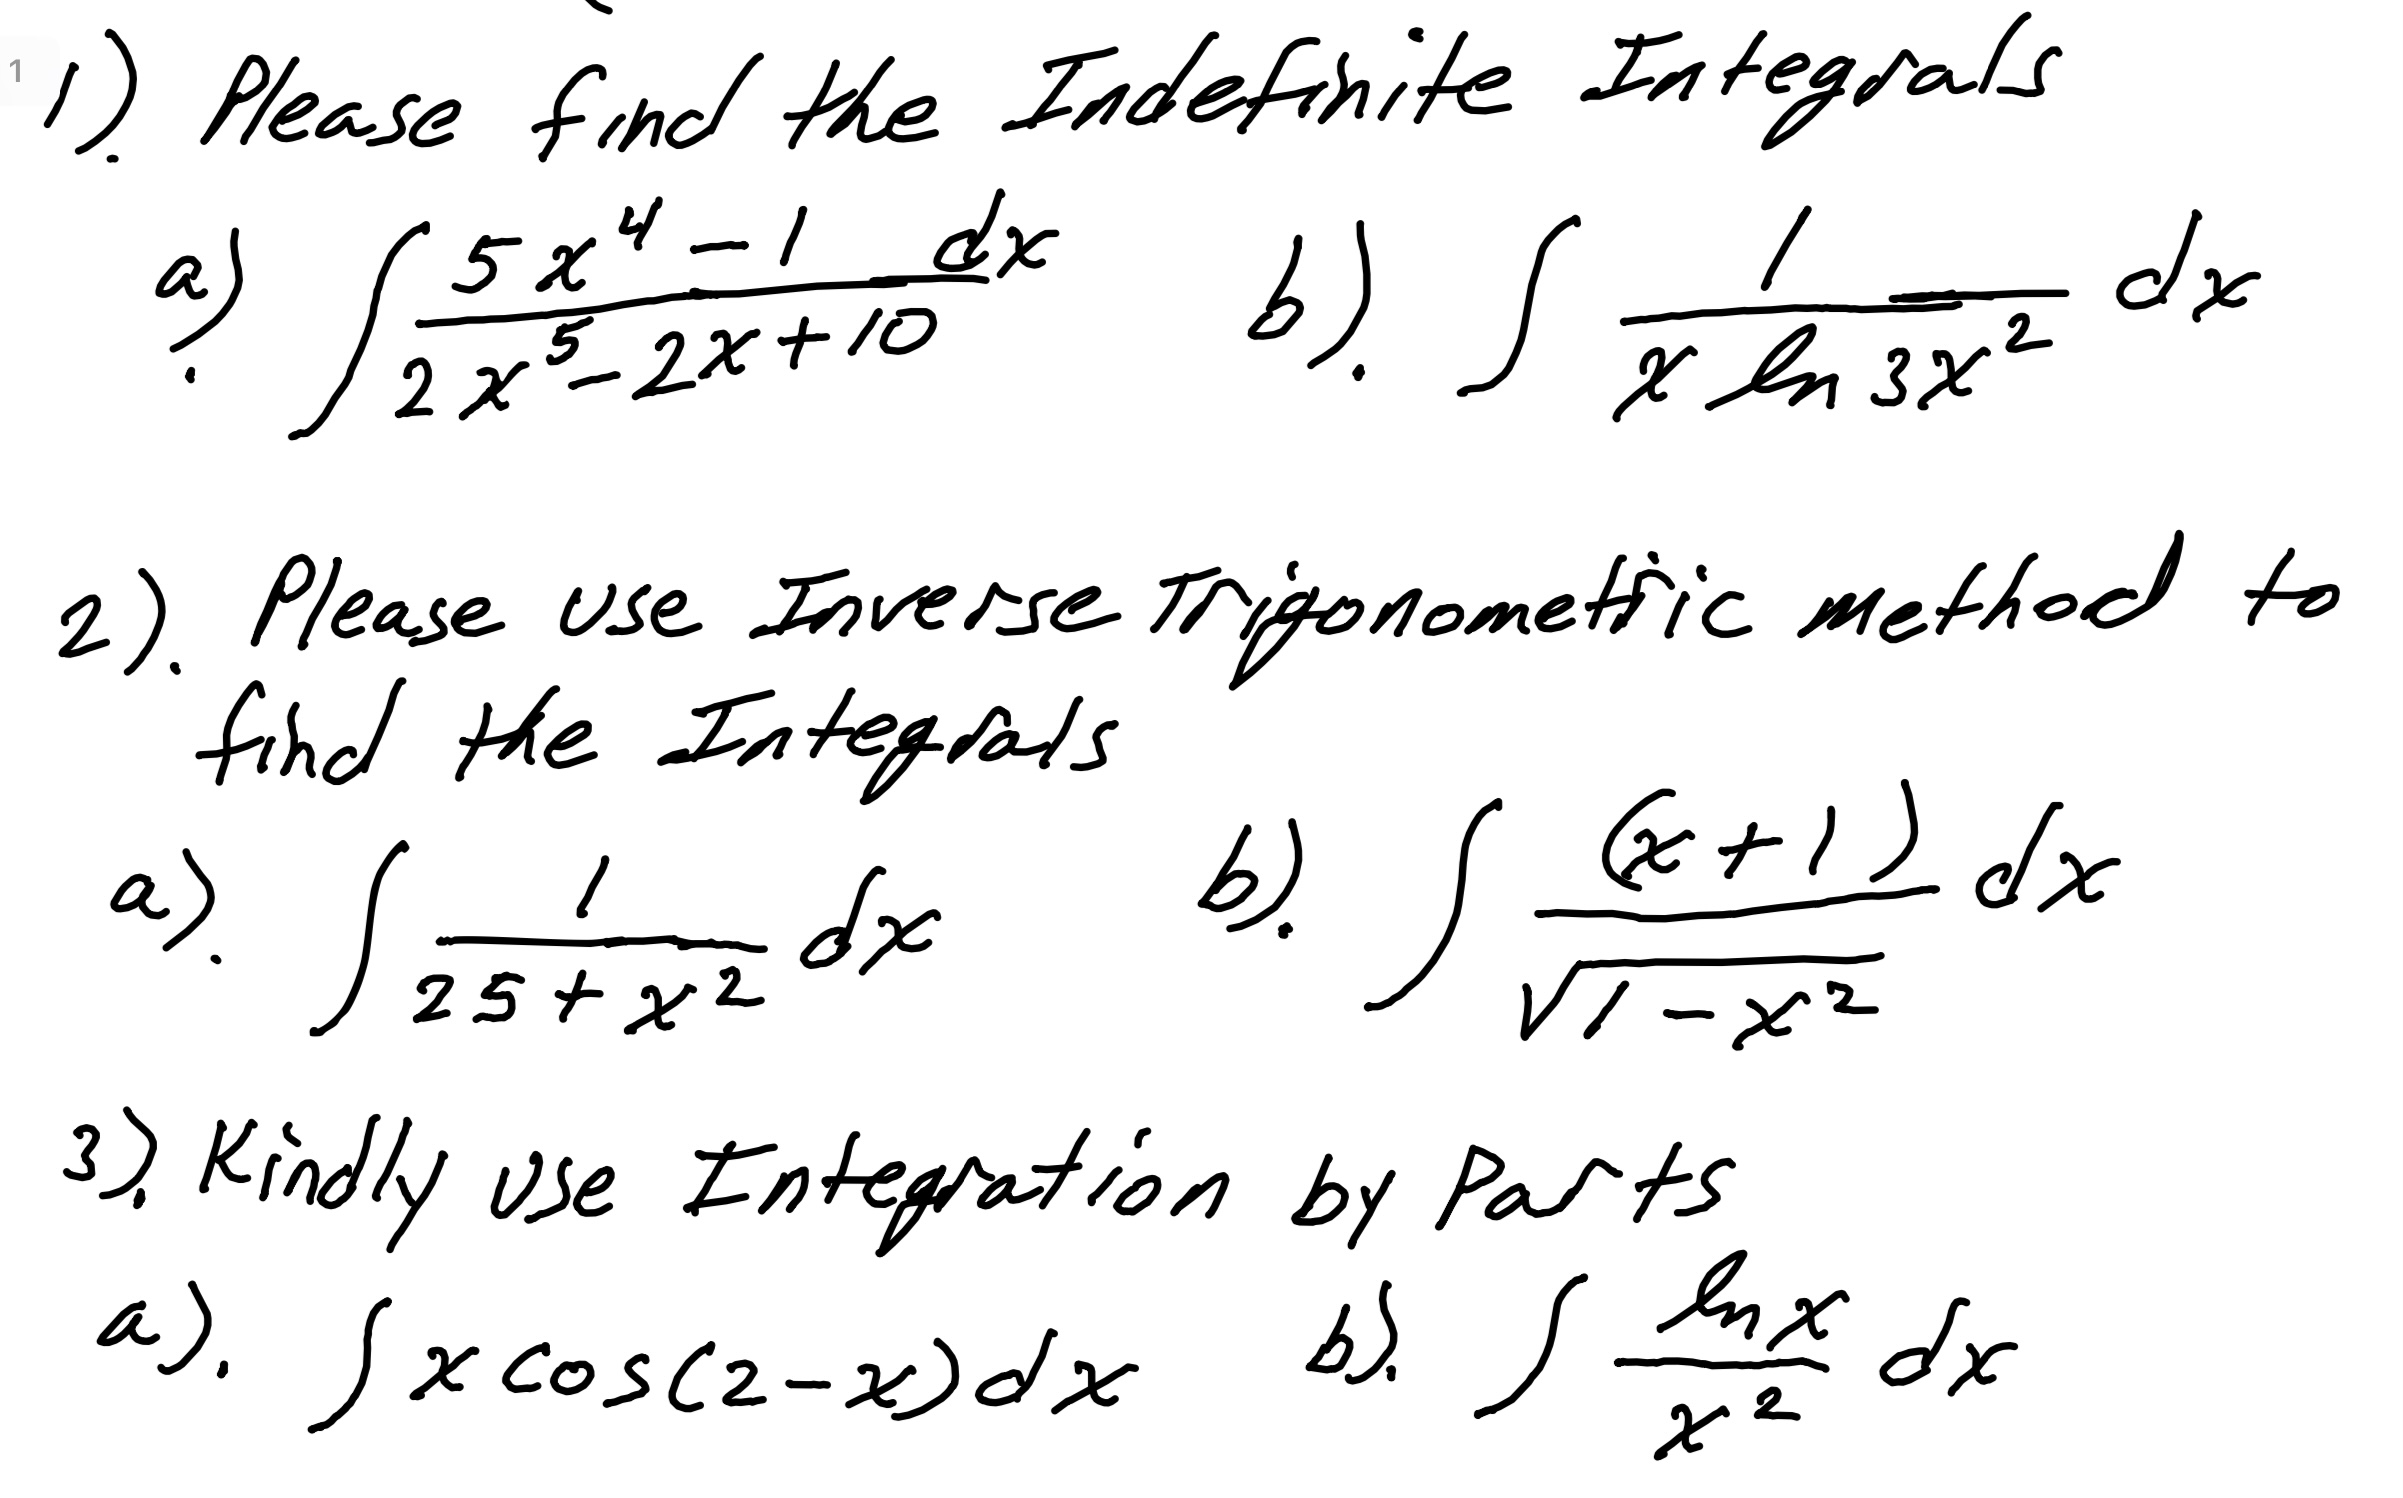 1
1). Please find the Indefinite Integrals
a). ∫ (5x⁴ - 1)/(2x⁵ - 2x + 10) dx b). ∫ 1/(x ln 3x²) dx
2). Please use Inverse Trigonometric method to
find the Integrals
a). ∫ 1/(25 + x²) dx b). ∫ (x + 1)/√(1 - x²) dx
3). Kindly use Integration by Parts
a). ∫ x cos(2 - x) dx b). ∫ (ln x)/x² dx